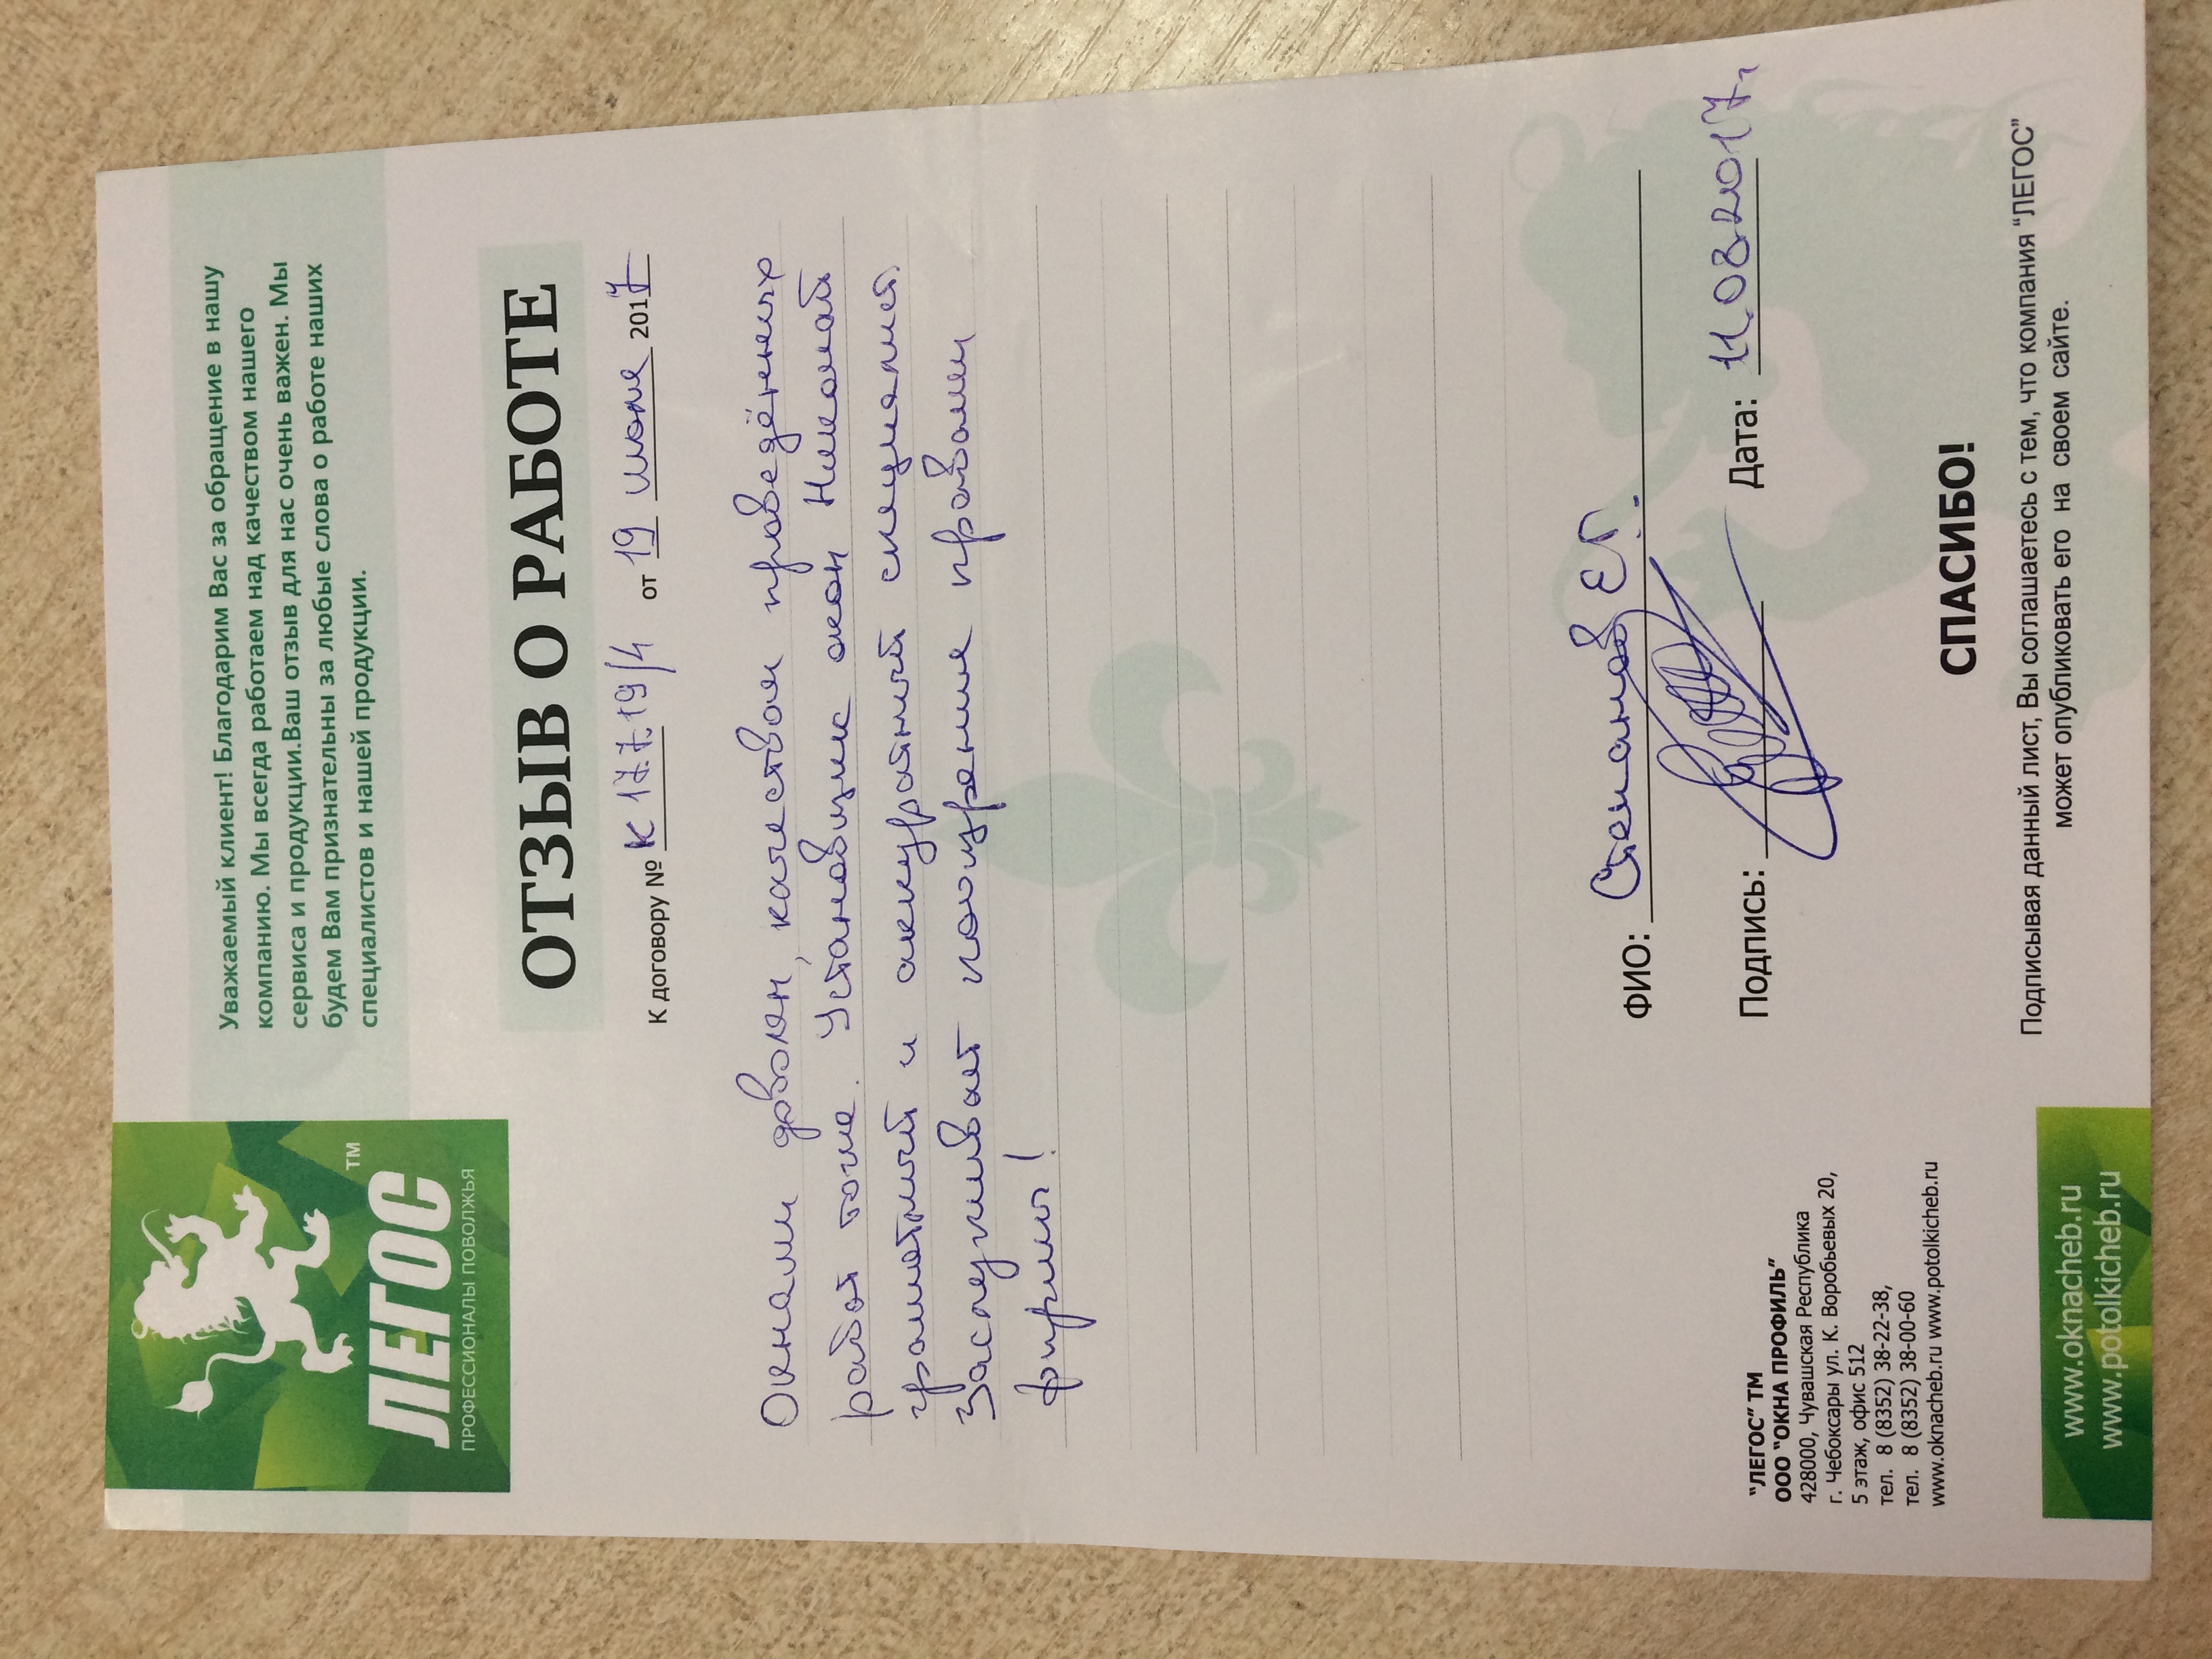 ЛЕГОС
TM
ПРОФЕССИОНАЛЫ ПОВОЛЖЬЯ
Уважаемый клиент! Благодарим Вас за обращение в нашу
компанию. Мы всегда работаем над качеством нашего
сервиса и продукции.Ваш отзыв для нас очень важен. Мы
будем Вам признательны за любые слова о работе наших
специалистов и нашей продукции.
ОТЗЫВ О РАБОТЕ
К договору № К 17.7.19/4 от 19 июля 2017
Окнами доволен, качеством проведённых
работ тоже. Установщик окон Николай
грамотный и аккуратный специалист.
Заслуживает поощрение правами
фирмы!
ФИО: Степанов Е.Г.
Подпись:
Дата: 11.08.2017г.
“ЛЕГОС” ТМ
ООО “ОКНА ПРОФИЛЬ”
428000, Чувашская Республика
г. Чебоксары ул. К. Воробьевых 20,
5 этаж, офис 512
тел. 8 (8352) 38-22-38,
тел. 8 (8352) 38-00-60
www.oknacheb.ru www.potolkicheb.ru
СПАСИБО!
Подписывая данный лист, Вы соглашаетесь с тем, что компания “ЛЕГОС”
может опубликовать его на своем сайте.
www.oknacheb.ru
www.potolkicheb.ru